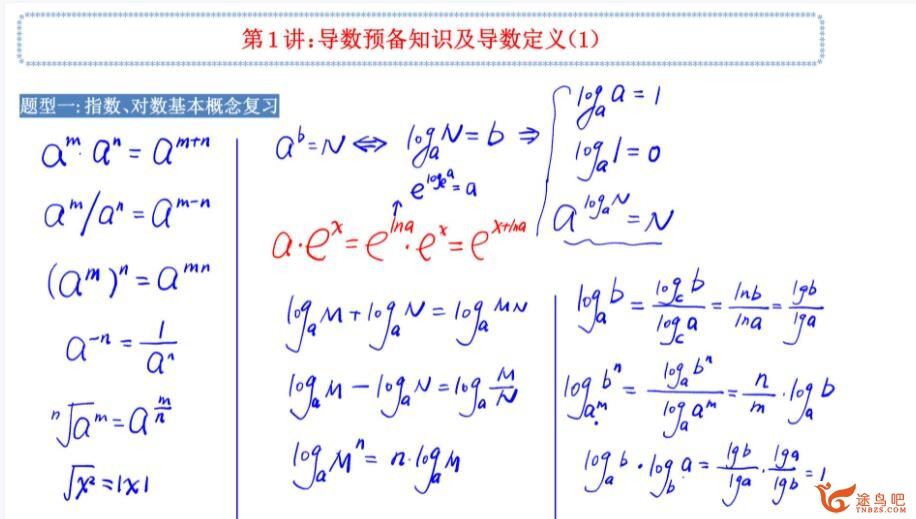 第1讲:导数预备知识及导数定义(1)
题型一:指数、对数基本概念复习
a^m · a^n = a^{m+n}
a^m / a^n = a^{m-n}
(a^m)^n = a^{mn}
a^{-n} = 1/a^n
ⁿ√a^m = a^{m/n}
√x² = |x|
a^b = N ⇔ log_a N = b ⇒
log_a a = 1
log_a 1 = 0
a^{log_a N} = N
e^{log_e a} = a
↑
a·e^x = e^{lna}·e^x = e^{x+lna}
log_a M + log_a N = log_a MN
log_a M - log_a N = log_a M/N
log_a M^n = n·log_a M
log_a b = log_c b / log_c a = lnb / lna = lgb / lga
log_{a^m} b^n = log_a b^n / log_a a^m = n/m · log_a b
log_a b · log_b a = lgb/lga · lga/lgb = 1
途鸟吧
TNBZS.COM